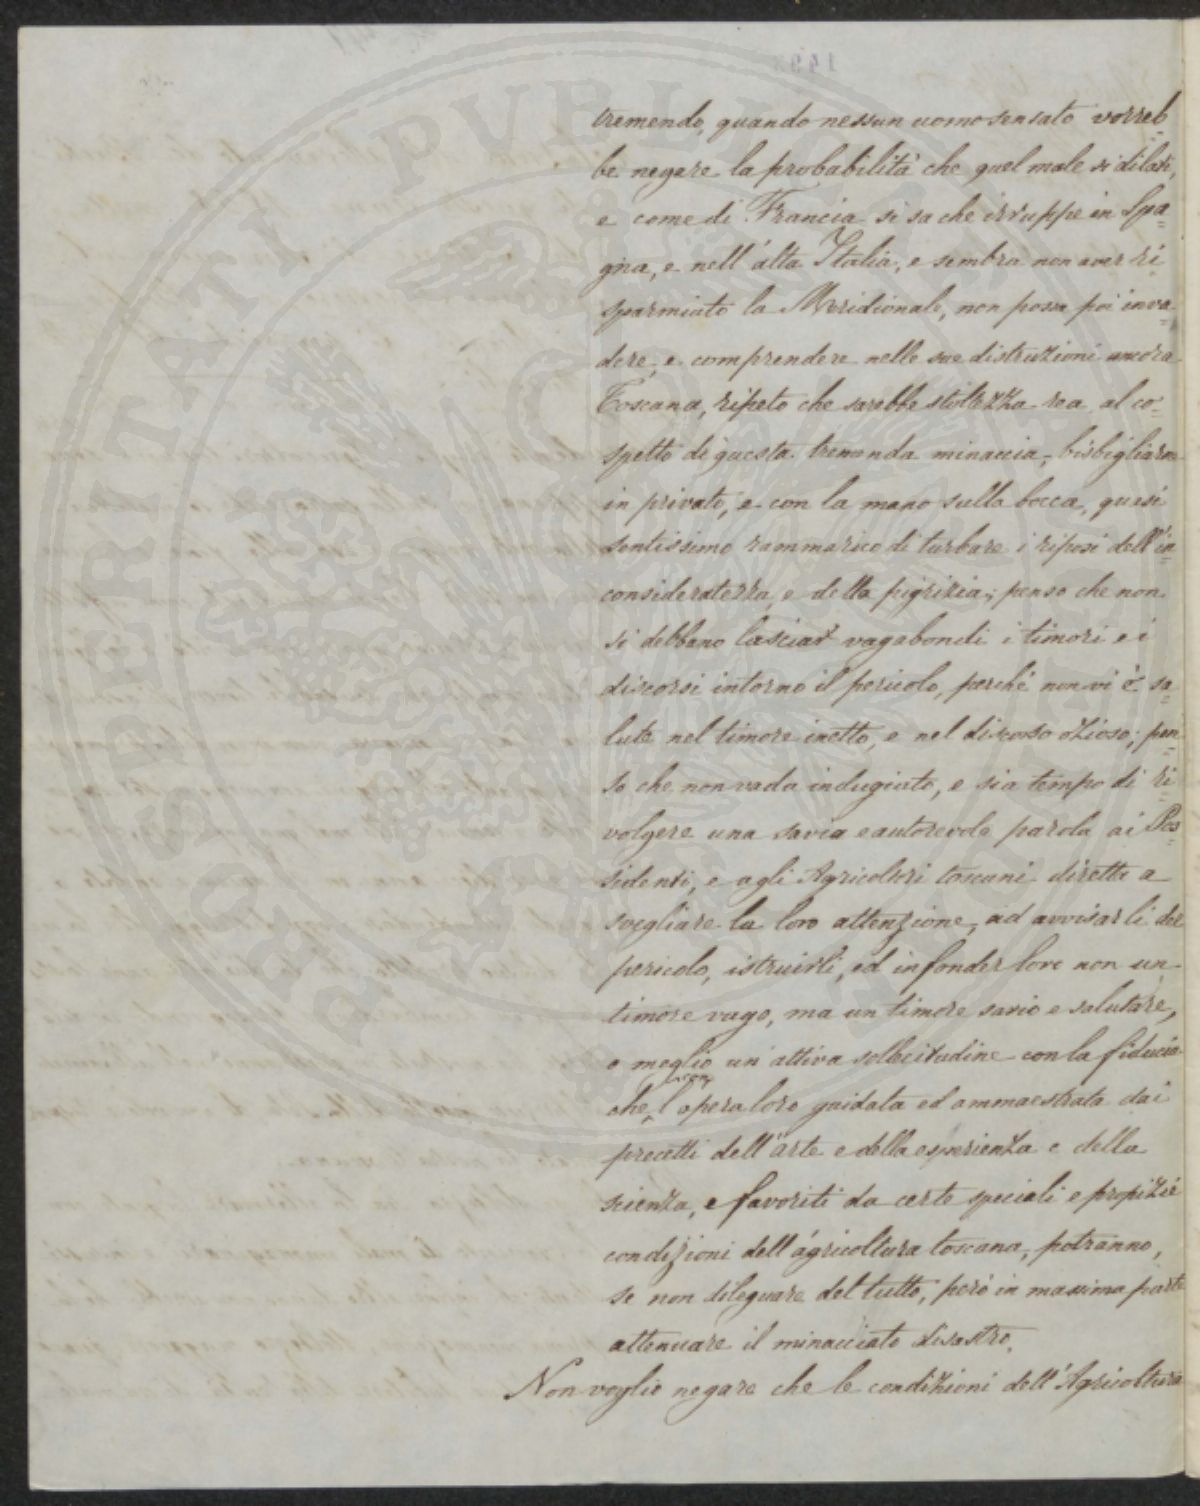 tremendo, quando nessun uomo sensato vorreb=
be negare la probabilità che quel male si dilati,
e come di Francia si sa che irruppe in Spa=
gna, e nell'alta Italia, e sembra non aver ri
sparmiato la Meridionale, non possa poi inva=
dere, e comprendere nelle sue distruzioni ancora
Toscana, ripeto che sarebbe stoltezza rea al co=
spetto di questa tremenda minaccia, bisbigliarne
in privato, e con la mano sulla bocca, quasi
sentissimo rammarico di turbare i riposi dell'in=
consideratezza, e della pigrizia; penso che non
si debbano lasciar vagabondi i timori e i
discorsi intorno il pericolo, perchè non vi è sa=
lute nel timore inetto, e nel discorso ozioso; pen=
so che non vada indugiato, e sia tempo di ri=
volgere una savia e autorevole parola ai Pos=
sidenti, e agli Agricoltori toscani diretta a
svegliare la loro attenzione, ad avvisarli del
pericolo, istruirli, ed infonder loro non un
timore vago, ma un timore savio e salutare,
o meglio un'attiva sollecitudine con la fiducia
che, con l'opera loro guidata ed ammaestrata dai
precetti dell'arte e della esperienza e della
scienza, e favoriti da certe speciali e propizie
condizioni dell'agricoltura toscana, potranno,
se non dileguare del tutto, però in massima parte
attenuare il minacciato disastro.
Non voglio negare che le condizioni dell'Agricoltura
PROSPERITATI PVBLICAE